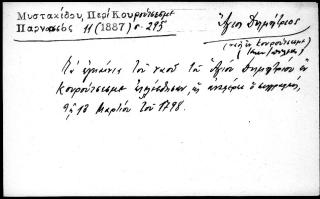 Μυστακίδου, Περὶ Κουρούτσεσμε
Παρνασσός 11 (1887) σ. 295
Ἅγιος Δημήτριος
(Κουρούτσεσμε)
Τὰ ἐγκαίνια τοῦ ναοῦ τοῦ Ἁγίου Δημητρίου ἐν
Κουρούτσεσμε ἐτελέσθησαν, ὡς ἀναφέρει ὁ συγγραφεύς,
τῇ 18 Μαρτίου τοῦ 1798.